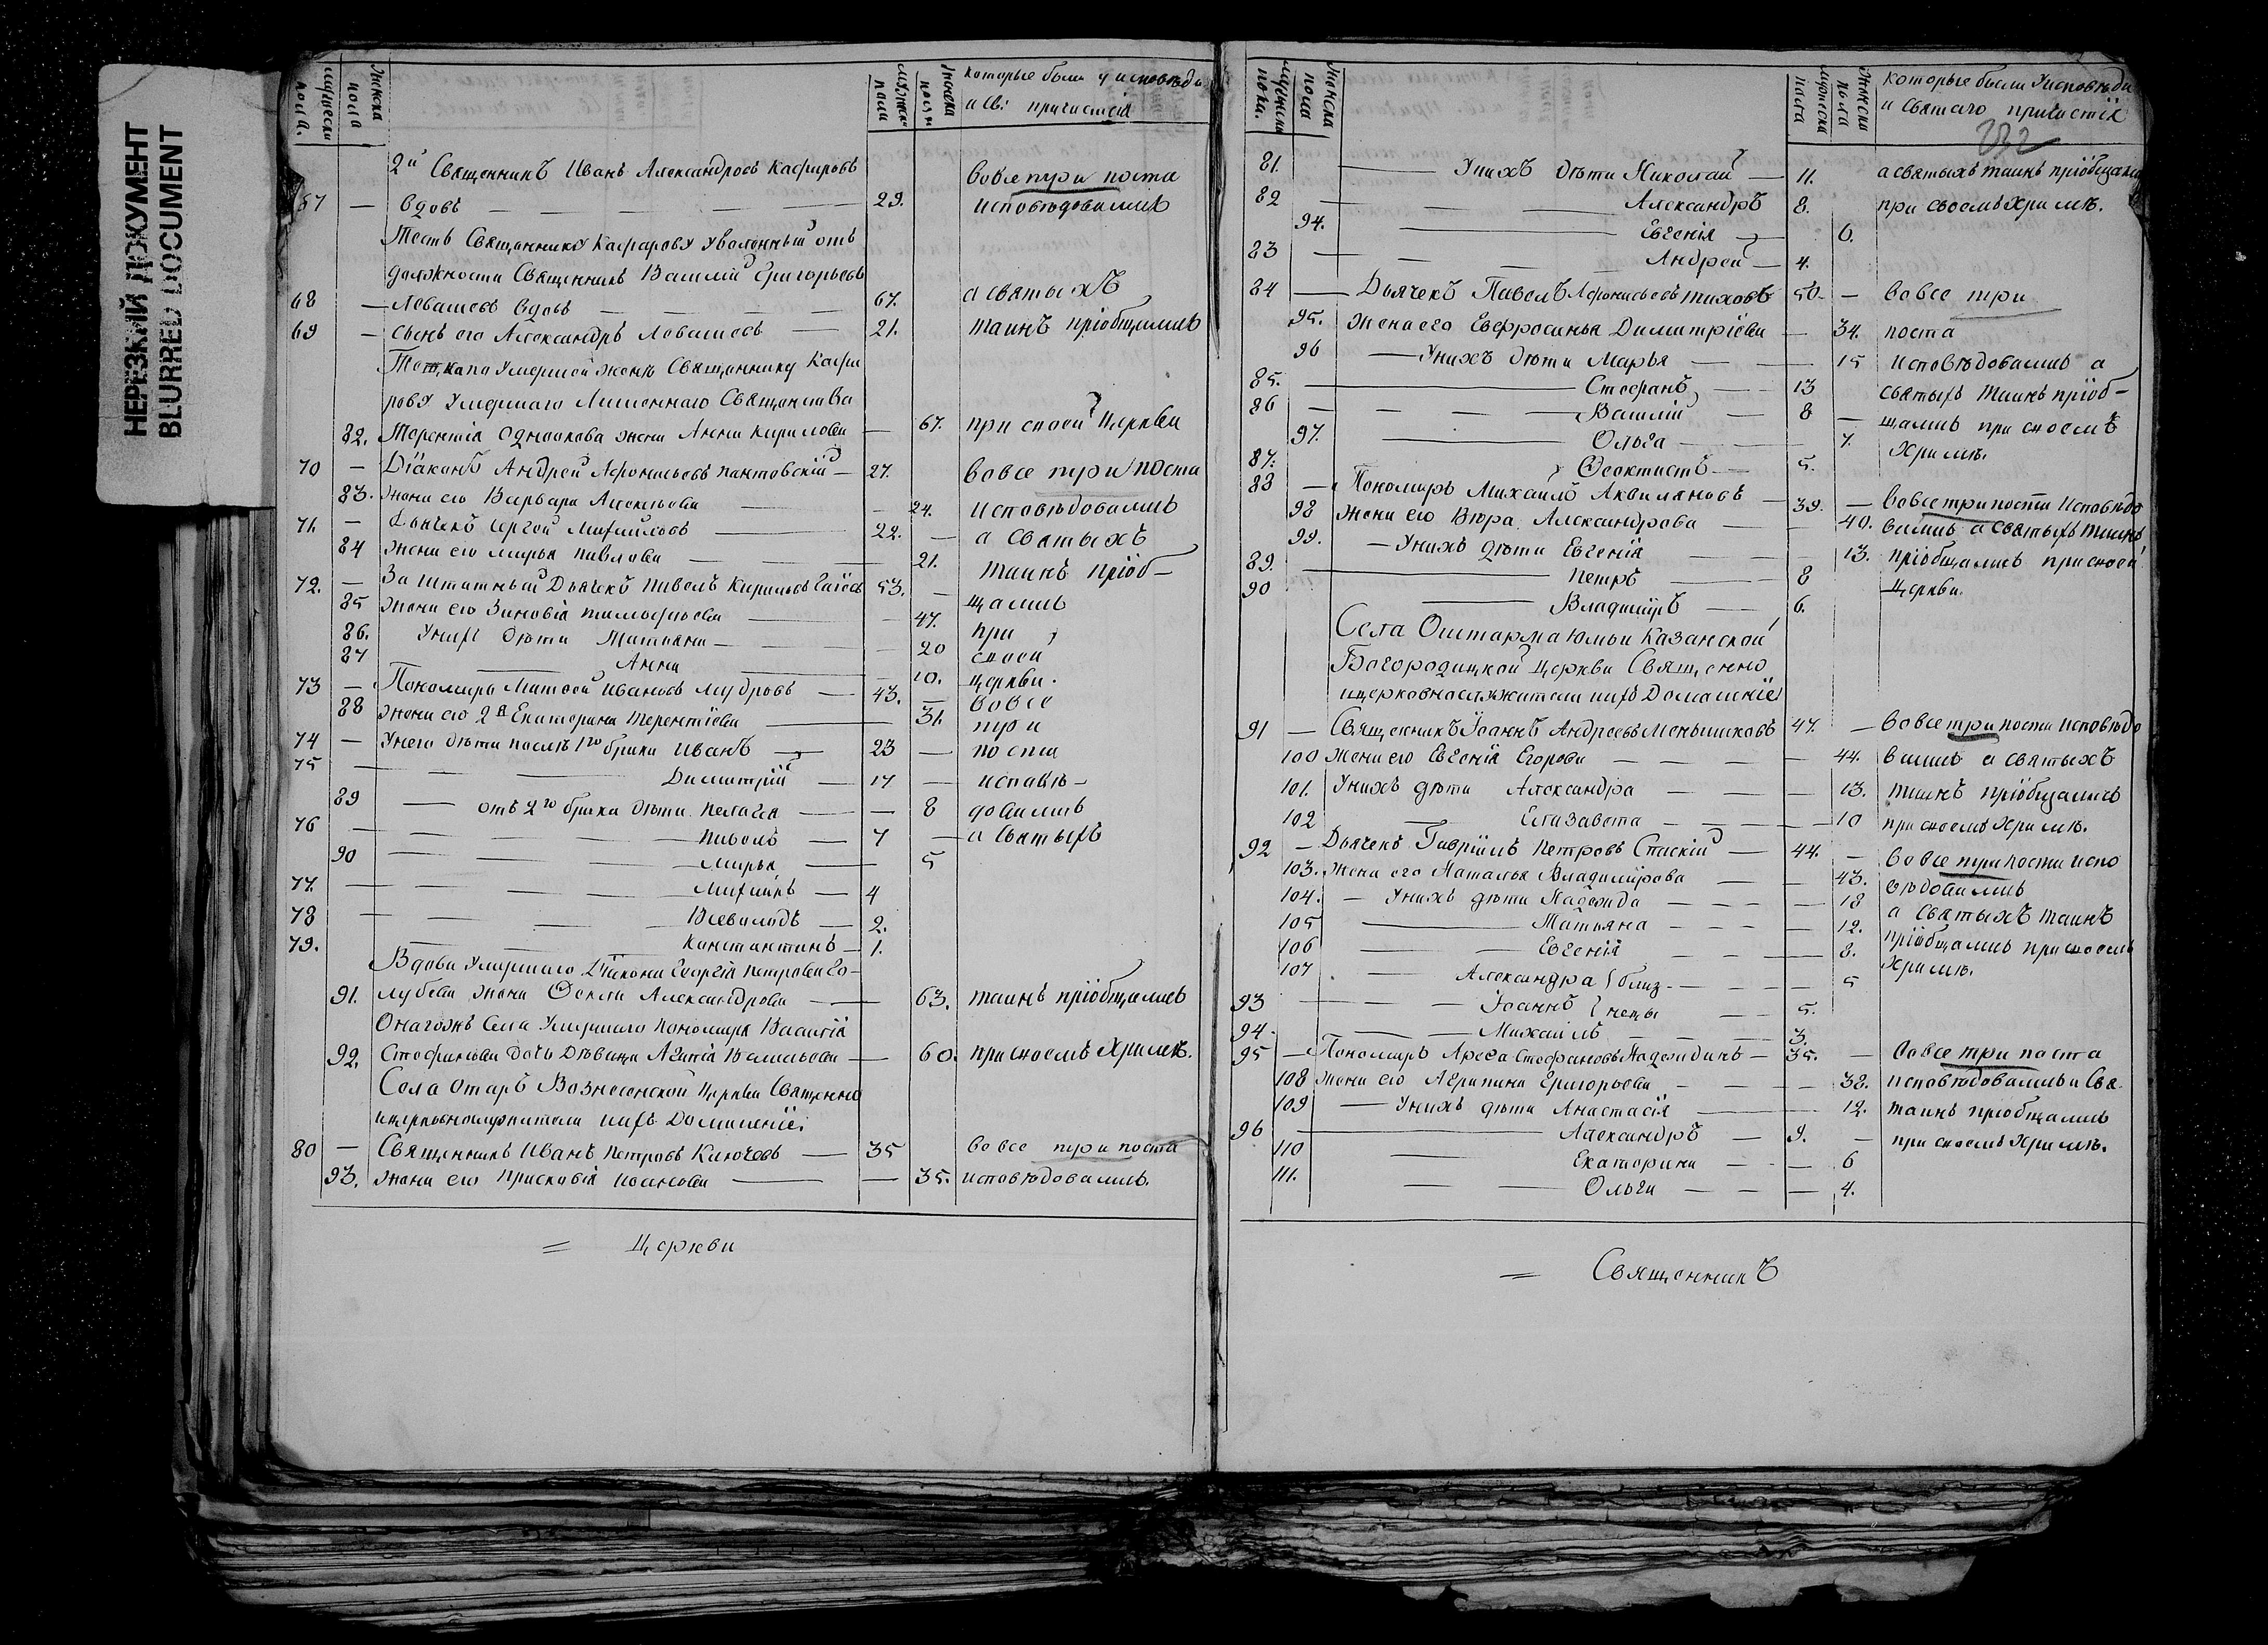 НЕРЕЗКИЙ ДОКУМЕНТ
BLURRED DOCUMENT
мужеска пола. женска пола мужеска пола женска пола которые были у исповеди
и св: причастия
2й Священникъ Иванъ Александровъ во все три поста
67 — вдовъ — 29. исповѣдовались
Тесть Священнику уволенный отъ
должности Священникъ Василий Григорьевъ
68 — Левашевъ вдовъ — 67. а святыхъ
69 — сынъ его Александръ Левашевъ — 21. таинъ пріобщались
по умершей женѣ Священнику
умершаго лишеннаго Священства
82. Терентія жена Анна Кирилова — 67. при своей церкви
70 — Діаконъ Андрей Афонасьевъ — 27. во все три поста
83. жена его Варвара — 24. исповѣдовались
71. — Дьячекъ Сергей Михайловъ — 22. — а святыхъ
84 жена его Марья Павлова — 21. таинъ пріоб-
72. — Заштатный Дьячекъ Павелъ Кириловъ 53. —
85 жена его Зиновія Тимофеева — 47. щались
86. У нихъ дѣти Татьяна — 20 при
87 — Анна — 10. своей
73 — Пономарь Матвей Ивановъ Мудровъ — 43. — церкви.
88 жена его 2я Екатерина Терентіева — 31. во все
74 — У него дѣти послѣ 1го брака Иванъ — 23 — три
75 — Димитрій — 17 — поста
89 — отъ 2го брака дѣти Пелагея — 8 исповѣ-
76 — Павелъ — 7 — довались
90 — Марья — 5 а святыхъ
77. — Михаилъ — 4
78 — Всеволодъ — 2.
79. — Константинъ — 1.
Вдова умершаго Діакона Георгія Петрова Го-
91. лубева жена Фекла Александрова — 63. таинъ пріобщались
Онагожъ Села умершаго пономаря Василія
92. Стефанова дочь Дѣвица Агапія Васильева — 60. при своемъ Храмѣ.
Села Отаръ Вознесенской Церкви Священно
и церковнослужители и ихъ Домашніе
80 — Священникъ Иванъ Петровъ Ключевъ — 35 во все три поста
93. жена его Прасковія Иванова — 35. исповѣдовались.
= Церкви
мужеска пола. женска пола мужеска пола женска пола которые были у исповѣди
и святаго причастія
232
81. — У нихъ дѣти Николай — 11. а святыхъ таинъ пріобщались
82 — Александръ 8. при своемъ Храмѣ.
94. — Евгенія — 6.
83 — Андрей — 4.
84 — Дьячекъ Павелъ Афонасьевъ Тиховъ 50 — во все три
95. жена его Евфросинья Димитріева — 34. поста
96 — У нихъ дѣти Марья — 15 исповѣдовались а
85. — Стефанъ — 13 святыхъ таинъ пріоб-
86 — Василій — 8 — щались при своемъ
97. — Ольга — 7. Храмѣ.
87. — Феоктистъ — 5.
88 — Пономарь Михаилъ Аквиляновъ — 39. — во все три поста исповѣдо
98 жена его Вѣра Александрова — 40. вались а святыхъ таинъ
99. — У нихъ дѣти Евгенія — 13. пріобщались при своей
89. — Петръ — 8 церкви.
90 — Владиміръ — 6.
Села Оштарма Юмьи Казанской
Богородицкой Церкви Священно
и церковнослужители и ихъ Домашніе
91 — Священникъ Іоаннъ Андреевъ Меньшиковъ 47. — во все три поста исповѣдо
100 жена его Евгенія Егорова — 44. вались а святыхъ
101. У нихъ дѣти Александра — 13. таинъ пріобщались
102 — Елизавета — 10 при своемъ Храмѣ.
92 — Дьячекъ Гавріилъ Петровъ Спаскій — 44. — во все три поста испо
103. жена его Наталья Владимірова — 43. вѣдовались
104. — У нихъ дѣти Надежда — 18 а святыхъ таинъ
105 — Татьяна — 12. пріобщались при своемъ
106 — Евгенія — 8. Храмѣ.
107 — Александра } близ- — 5
93 — Іоаннъ } нецы — 5.
94. — Михаилъ — 3.
95 — Пономарь Арефа Стефановъ Надеждинъ — 35. — во все три поста
108 жена его Агрипина Григорьева — 32. исповѣдовались а Свя-
109 — У нихъ дѣти Анастасія — 12. таинъ пріобщались
96 — Александръ — 9. — при своемъ Храмѣ.
110 — Екатерина — 6
111. — Ольга — 4.
= Священникъ